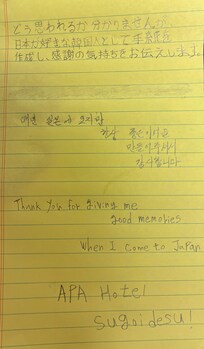 どう思われるか分かりませんが、
日本が好きな韓国人として手紙を
作成し、感謝の気持ちをお伝えします。
매번 일본에 오지만
항상 좋은 추억을
만들어주셔서
감사합니다
Thank you for giving me
good memories
When I come to Japan
APA Hotel
Sugoidesu!